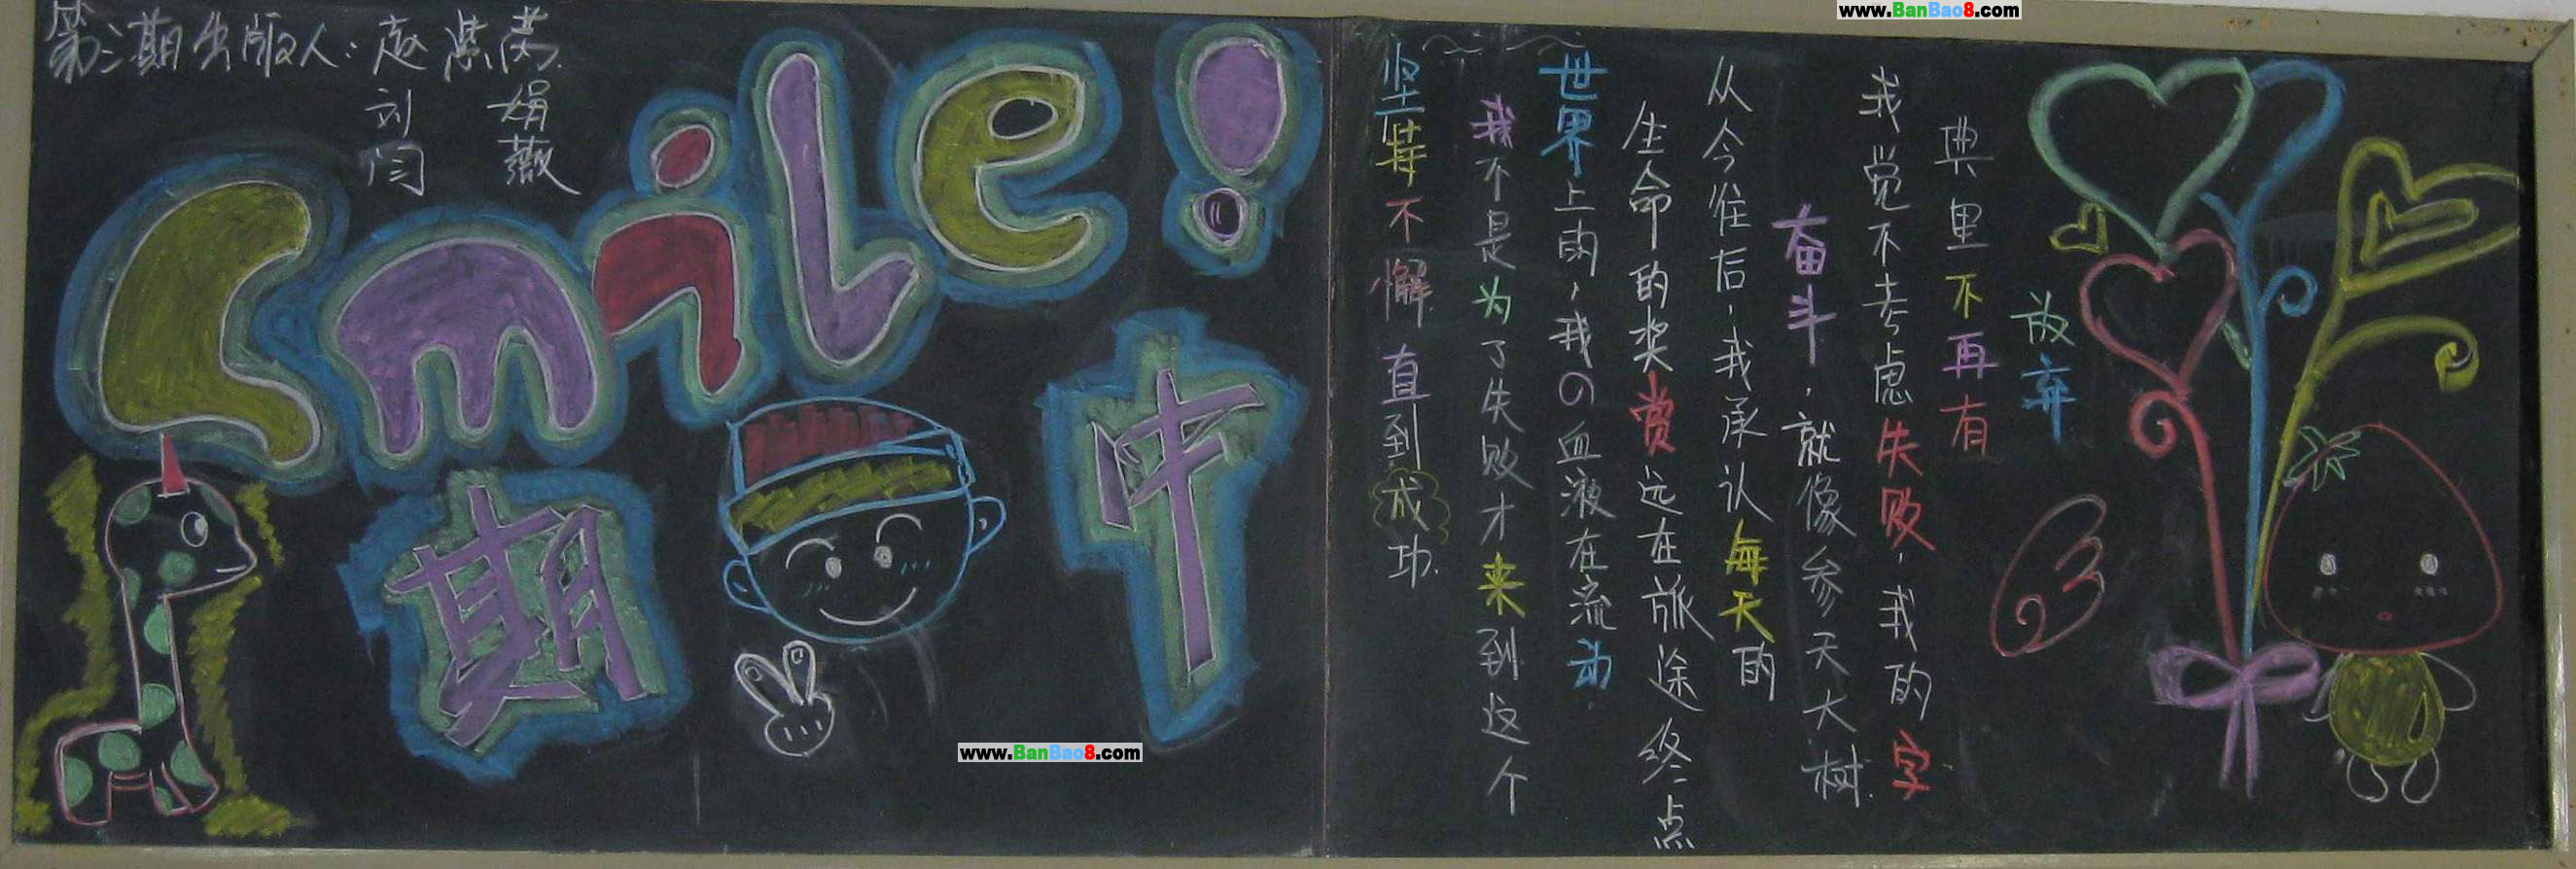 www.BanBao8.com
第二期出版人:赵紫
刘娟
闫薇
Smile!
期中
坚持不懈直到成功.
我不是为了失败才来到这个
世界上的,我の血液在流动
生命的奖赏远在旅途终点
从今往后,我承认每天的
奋斗,就像参天大树.
我觉不去考虑失败,我的字
典里不再有
放弃
www.BanBao8.com